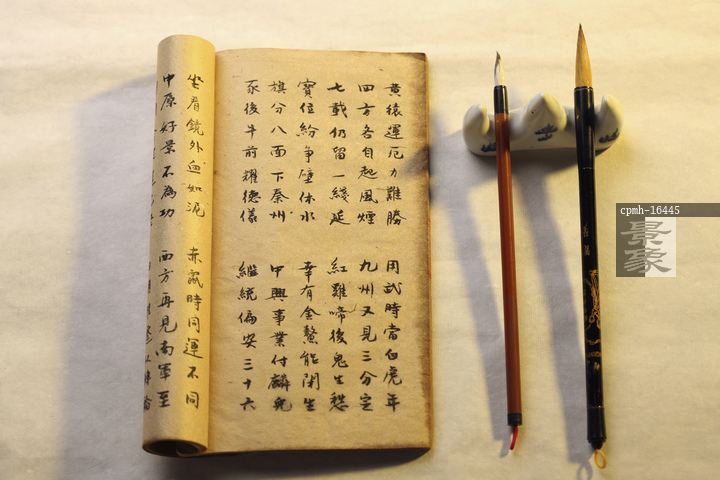 黃猿運厄力難勝 用武時當白虎年
四方各自起風煙 九州又見三分定
七載仍留一綫延 紅雞啼後鬼生愁
寶位紛爭壁休水 幸有金鰲能生
旗分八面下秦州 中興事業付麟兒
豕後牛前耀德儀 繼統偏安三十六
坐看鏡外血如泥 赤鼠時同運不同
中原好景不為功 西方再見南軍至
cpmh-16445
景象